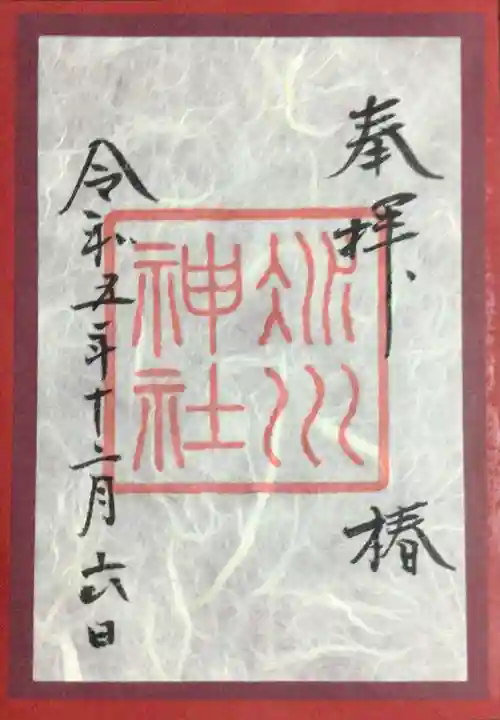 奉拝
椿
川
神社
令和五年十二月六日